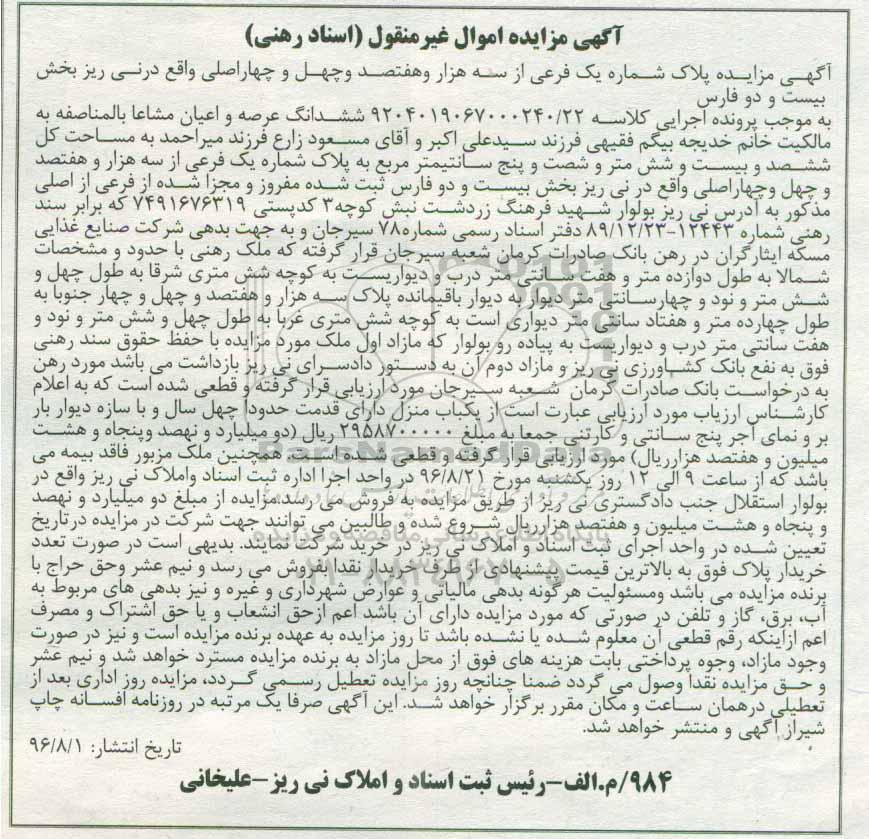 آگهی مزایده اموال غیرمنقول (اسناد رهنی)
آگهی مزایده پلاک شماره یک فرعی از سه هزار وهفتصد وچهل و چهاراصلی واقع درنی ریز بخش
بیست و دو فارس
به موجب پرونده اجرایی کلاسه ۹۲۰۴۰۱۹۰۶۷۰۰۰۲۴۰/۲۲ ششدانگ عرصه و اعیان مشاعا بالمناصفه به
مالکیت خانم خدیجه بیگم فقیهی فرزند سیدعلی اکبر و آقای مسعود زارع فرزند میراحمد به مساحت کل
ششصد و بیست و شش متر و شصت و پنج سانتیمتر مربع به پلاک شماره یک فرعی از سه هزار و هفتصد
و چهل وچهاراصلی واقع در نی ریز بخش بیست و دو فارس ثبت شده مفروز و مجزا شده از فرعی از اصلی
مذکور به آدرس نی ریز بولوار شهید فرهنگ زردشت نبش کوچه۳ کدپستی ۷۴۹۱۶۷۶۳۱۹ که برابر سند
رهنی شماره ۱۲۴۴۳-۸۹/۱۲/۲۳ دفتر اسناد رسمی شماره۷۸ سیرجان و به جهت بدهی شرکت صنایع غذایی
مسکه ایثارگران در رهن بانک صادرات کرمان شعبه سیرجان قرار گرفته که ملک رهنی با حدود و مشخصات
شمالا به طول دوازده متر و هفت سانتی متر درب و دیواریست به کوچه شش متری شرقا به طول چهل و
شش متر و نود و چهارسانتی متر دیوار به دیوار باقیمانده پلاک سه هزار و هفتصد و چهل و چهار جنوبا به
طول چهارده متر و هفتاد سانتی متر دیواری است به کوچه شش متری غربا به طول چهل و شش متر و نود و
هفت سانتی متر درب و دیواریست به پیاده رو بولوار که مازاد اول ملک مورد مزایده با حفظ حقوق سند رهنی
فوق به نفع بانک کشاورزی نی ریز و مازاد دوم آن به دستور دادسرای نی ریز بازداشت می باشد مورد رهن
به درخواست بانک صادرات کرمان شعبه سیرجان مورد ارزیابی قرار گرفته و قطعی شده است که به اعلام
کارشناس ارزیاب مورد ارزیابی عبارت است از یکباب منزل دارای قدمت حدودا چهل سال و با سازه دیوار بار
بر و نمای آجر پنج سانتی و کارتنی جمعا به مبلغ ۲۹۵۸۷۰۰۰۰۰ ریال (دو میلیارد و نهصد وپنجاه و هشت
میلیون و هفتصد هزارریال) مورد ارزیابی قرار گرفته و قطعی شده است. همچنین ملک مزبور فاقد بیمه می
باشد که از ساعت ۹ الی ۱۲ روز یکشنبه مورخ ۹۶/۸/۲۱ در واحد اجرا اداره ثبت اسناد واملاک نی ریز واقع در
بولوار استقلال جنب دادگستری نی ریز از طریق مزایده به فروش می رسد.مزایده از مبلغ دو میلیارد و نهصد
و پنجاه و هشت میلیون و هفتصد هزارریال شروع شده و طالبین می توانند جهت شرکت در مزایده درتاریخ
تعیین شده در واحد اجرای ثبت اسناد و املاک نی ریز در خرید شرکت نمایند. بدیهی است در صورت تعدد
خریدار پلاک فوق به بالاترین قیمت پیشنهادی از طرف خریدار نقدا فروش می رسد و نیم عشر وحق حراج با
برنده مزایده می باشد ومسئولیت هرگونه بدهی مالیاتی و عوارض شهرداری و غیره و نیز بدهی های مربوط به
آب، برق، گاز و تلفن در صورتی که مورد مزایده دارای آن باشد اعم ازحق انشعاب و یا حق اشتراک و مصرف
اعم ازاینکه رقم قطعی آن معلوم شده یا نشده باشد تا روز مزایده به عهده برنده مزایده است و نیز در صورت
وجود مازاد، وجوه پرداختی بابت هزینه های فوق از محل مازاد به برنده مزایده مسترد خواهد شد و نیم عشر
و حق مزایده نقدا وصول می گردد ضمنا چنانچه روز مزایده تعطیل رسمی گردد، مزایده روز اداری بعد از
تعطیلی درهمان ساعت و مکان مقرر برگزار خواهد شد. این آگهی صرفا یک مرتبه در روزنامه افسانه چاپ
شیراز آگهی و منتشر خواهد شد.
تاریخ انتشار: ۹۶/۸/۱
۹۸۴/م.الف-رئیس ثبت اسناد و املاک نی ریز-علیخانی